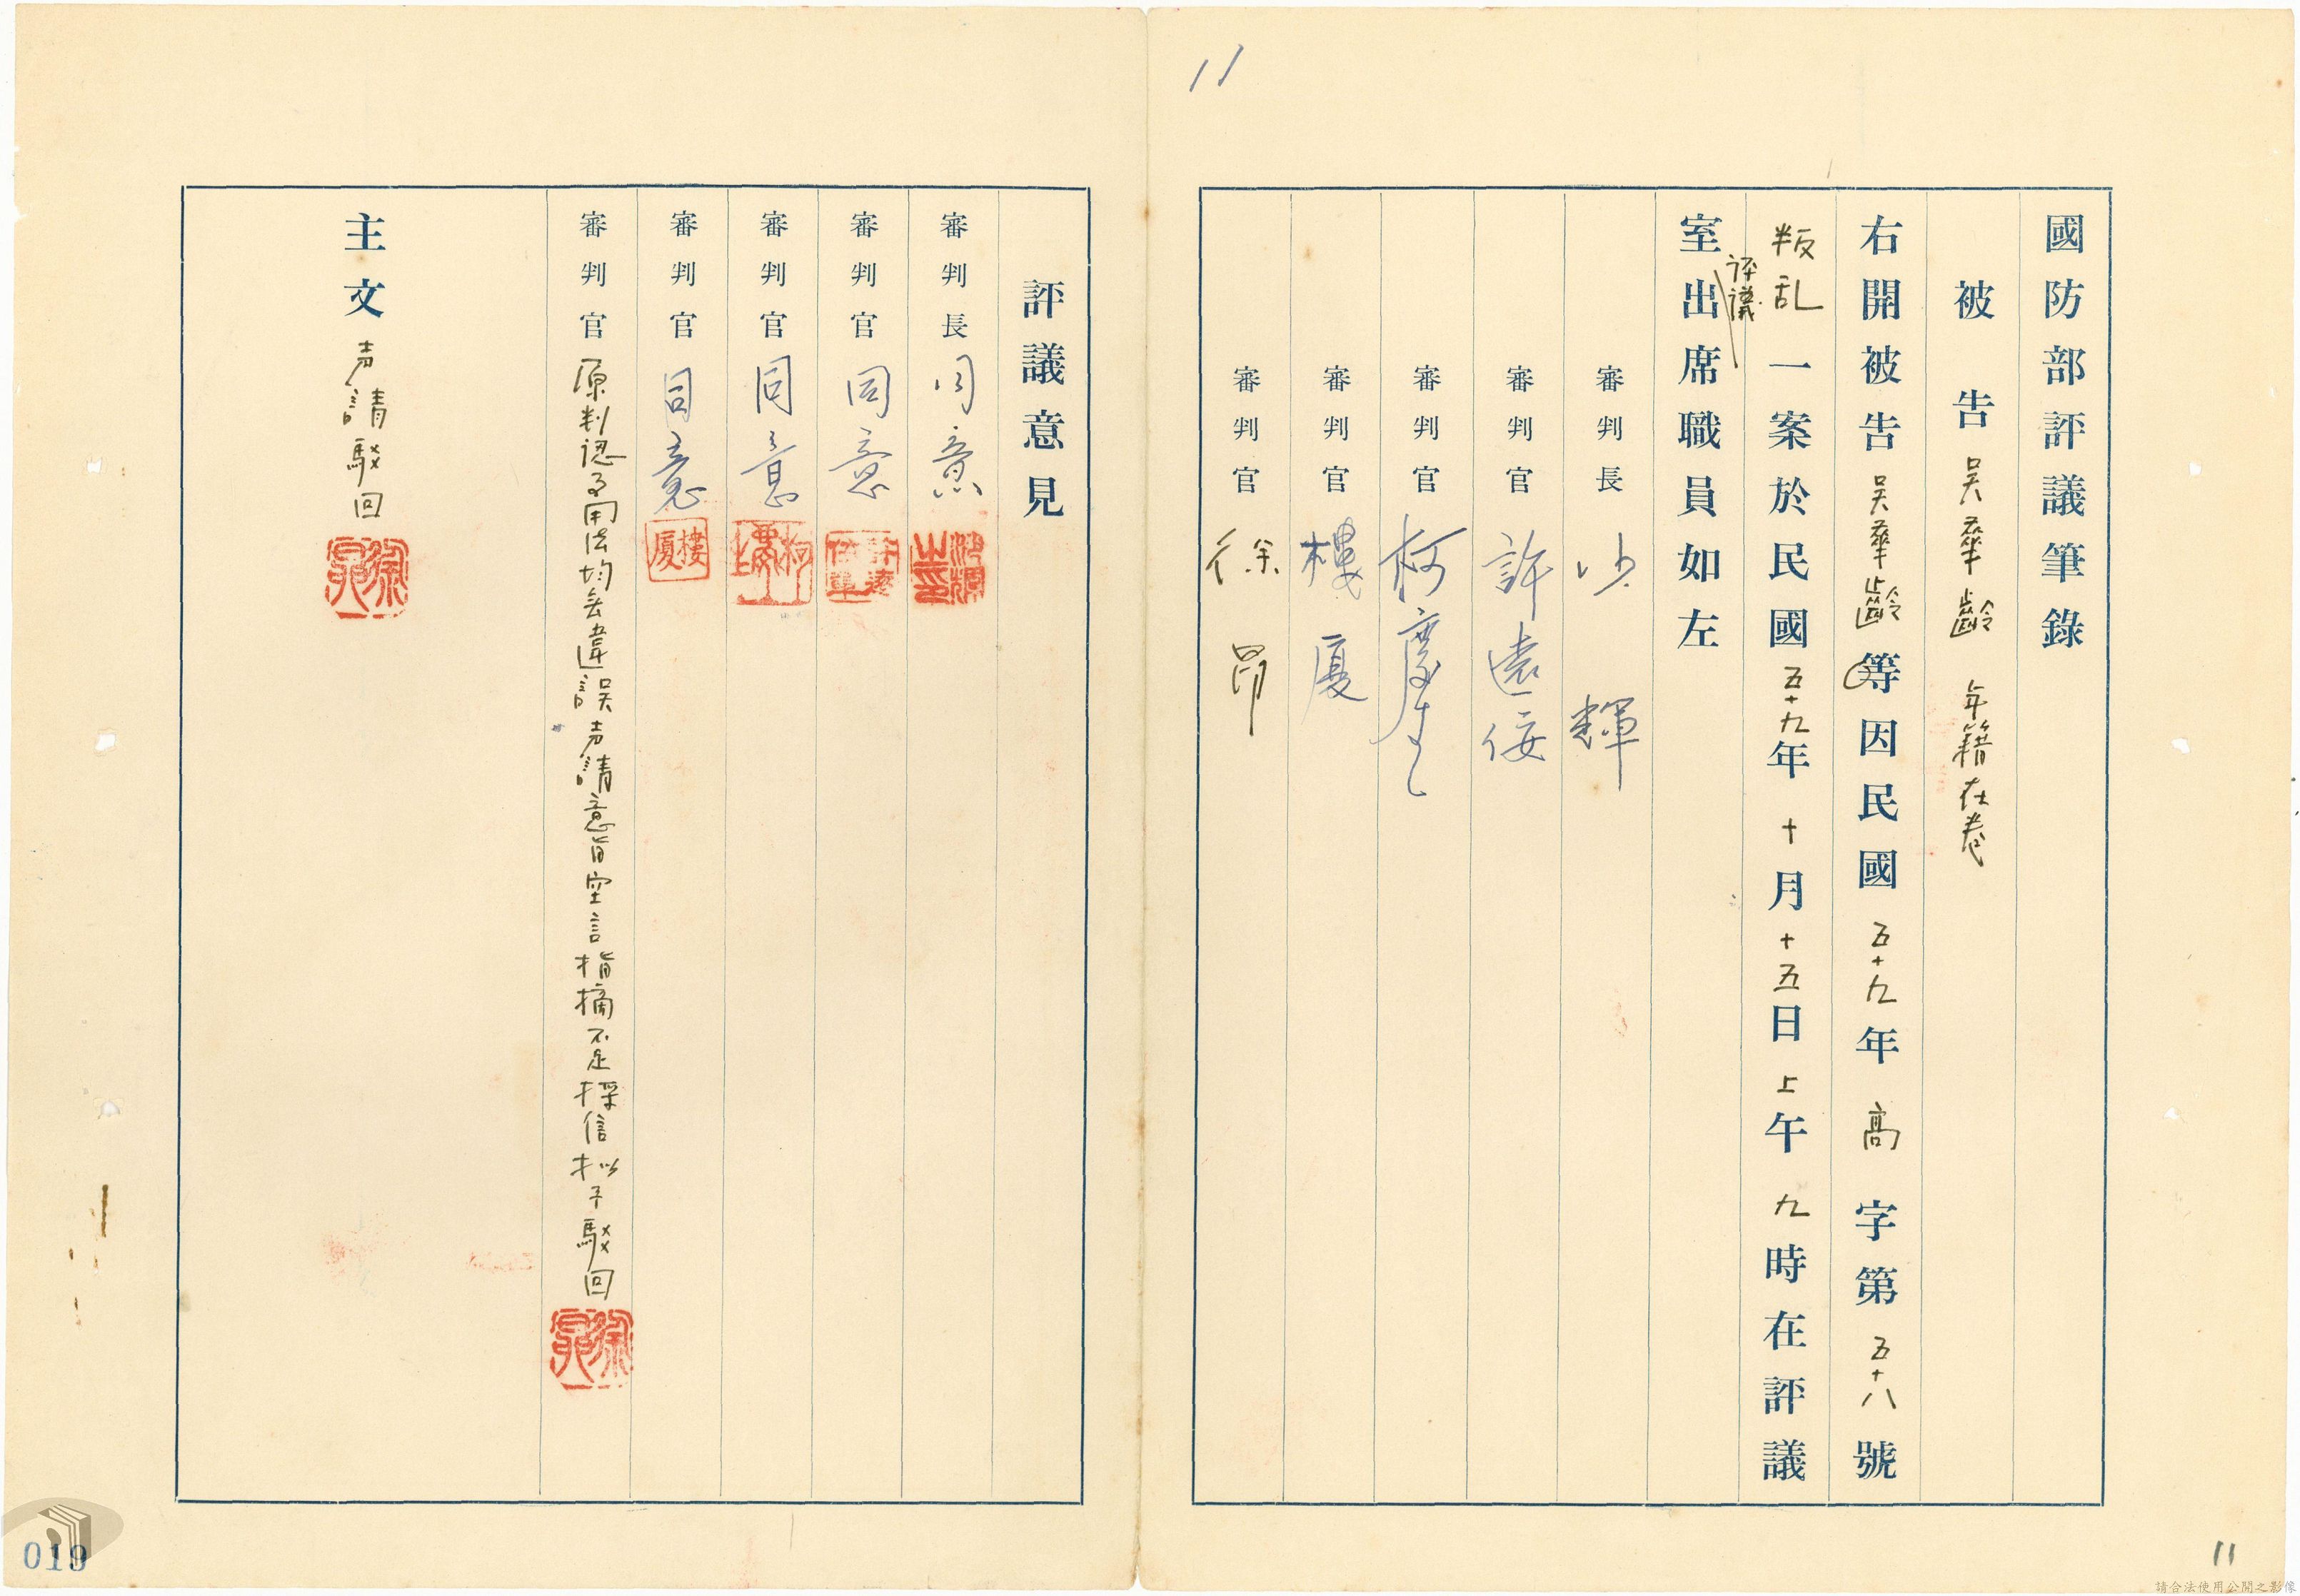 11
國防部評議筆錄
被告 吴華齡 年籍在卷
右開被告吴華齡等因民國五十九年高字第五十八號
叛乱一案於民國五十九年十月十五日上午九時在評議
評議
室出席職員如左
審判長 沙輝
審判官 許遠
審判官 柯慶生
審判官 樓厦
審判官 徐昂
評議意見
審判長 同意
審判官 同意
審判官 同意
審判官 同意 樓厦
審判官 原判認事用法均無違誤声請意旨空言指摘不足採信拟予駁回
主文 声請駁回
019
11
請合法使用公開之影像